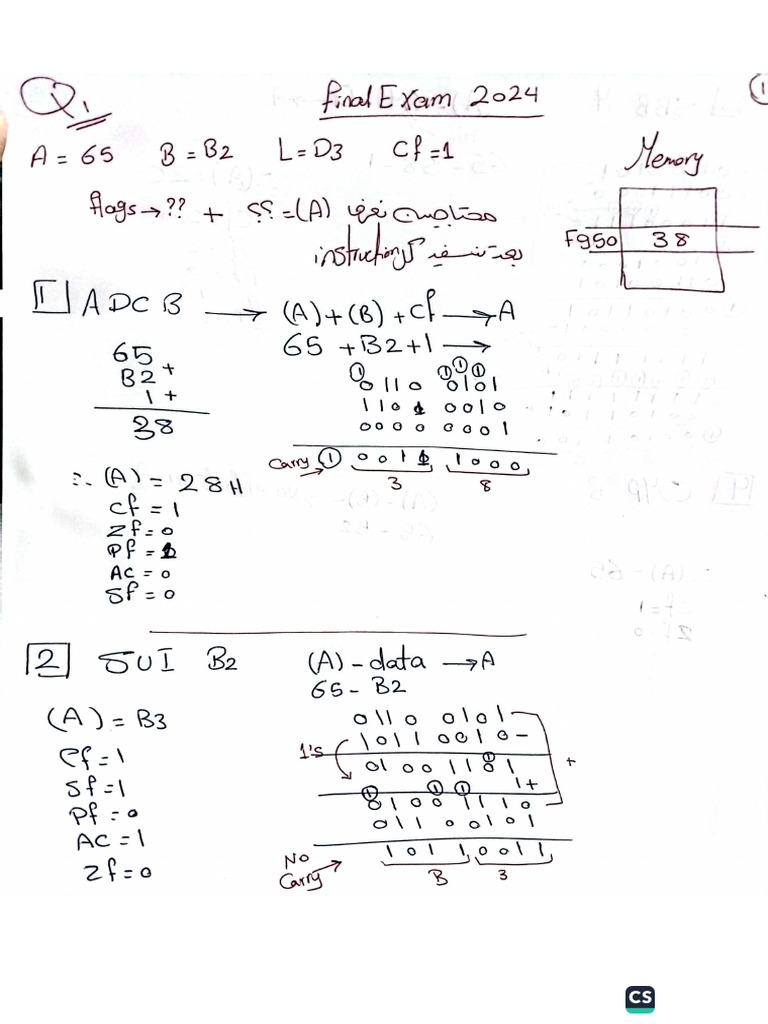 Q1
Final Exam 2024
1
A = 65 B = B2 L = D3 Cf = 1
Memory
flags → ?? + ؟؟ = (A) محتاجين نعرف
بعد تنفيذ كل instruction
F950 38
1 ADC B → (A) + (B) + Cf → A
65 + B2 + 1 →
65
B2 +
1 +
38
1 1 1 1
0110 0101
1101 0010
0000 0001
Carry → 1 0011 1000
3 8
∴ (A) = 28H
Cf = 1
Zf = 0
Pf = 1
AC = 0
Sf = 0
2 SUI B2 (A) - data → A
65 - B2
(A) = B3
0110 0101
1011 0010 -
1's
0100 1101
1 +
0100 1110
0110 0101
+
No Carry → 1011 0011
B 3
Cf = 1
Sf = 1
Pf = 0
AC = 1
Zf = 0
CS